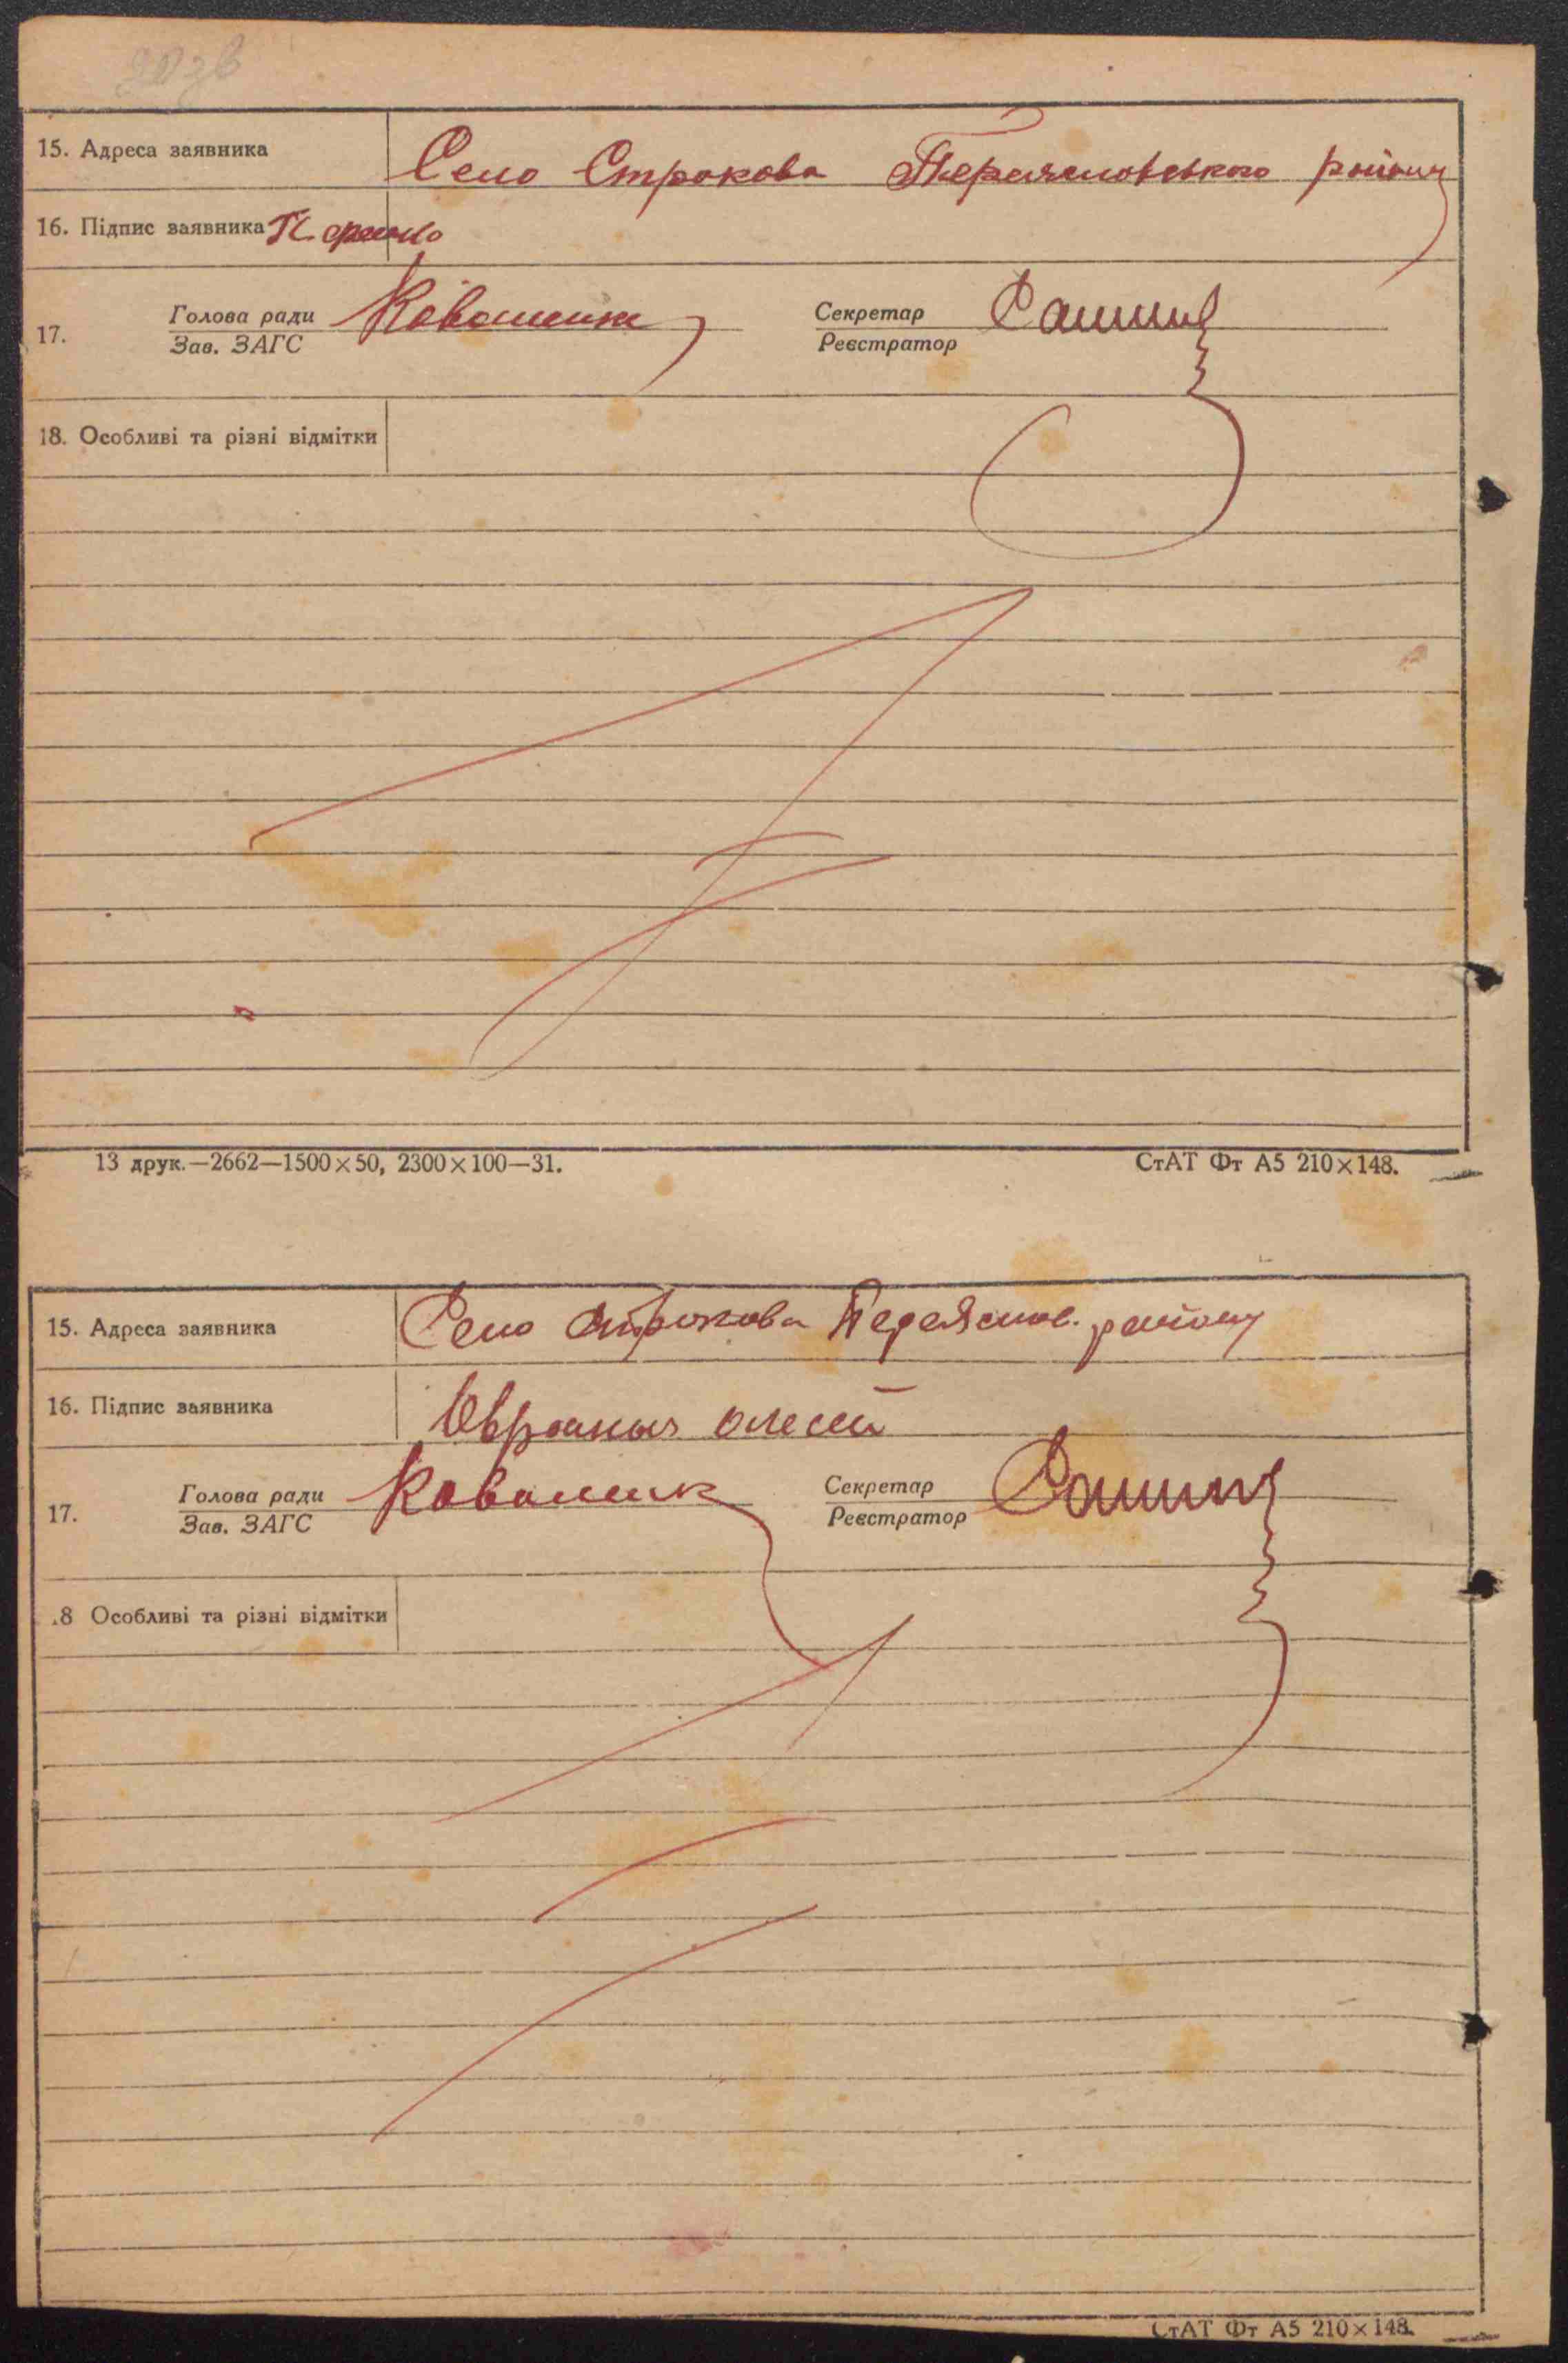 20зв
15. Адреса заявника Село Строкова Переяславського району
16. Підпис заявника
17. Голова ради Коваленко Секретар
Зав. ЗАГС Реєстратор
18. Особливі та різні відмітки
13 друк.—2662—1500×50, 2300×100—31.
СтАТ Фт А5 210×148.
15. Адреса заявника Село Строкова Переяслов. району
16. Підпис заявника
17. Голова ради Коваленк Секретар
Зав. ЗАГС Реєстратор
.8 Особливі та різні відмітки
СтАТ Фт А5 210×148.